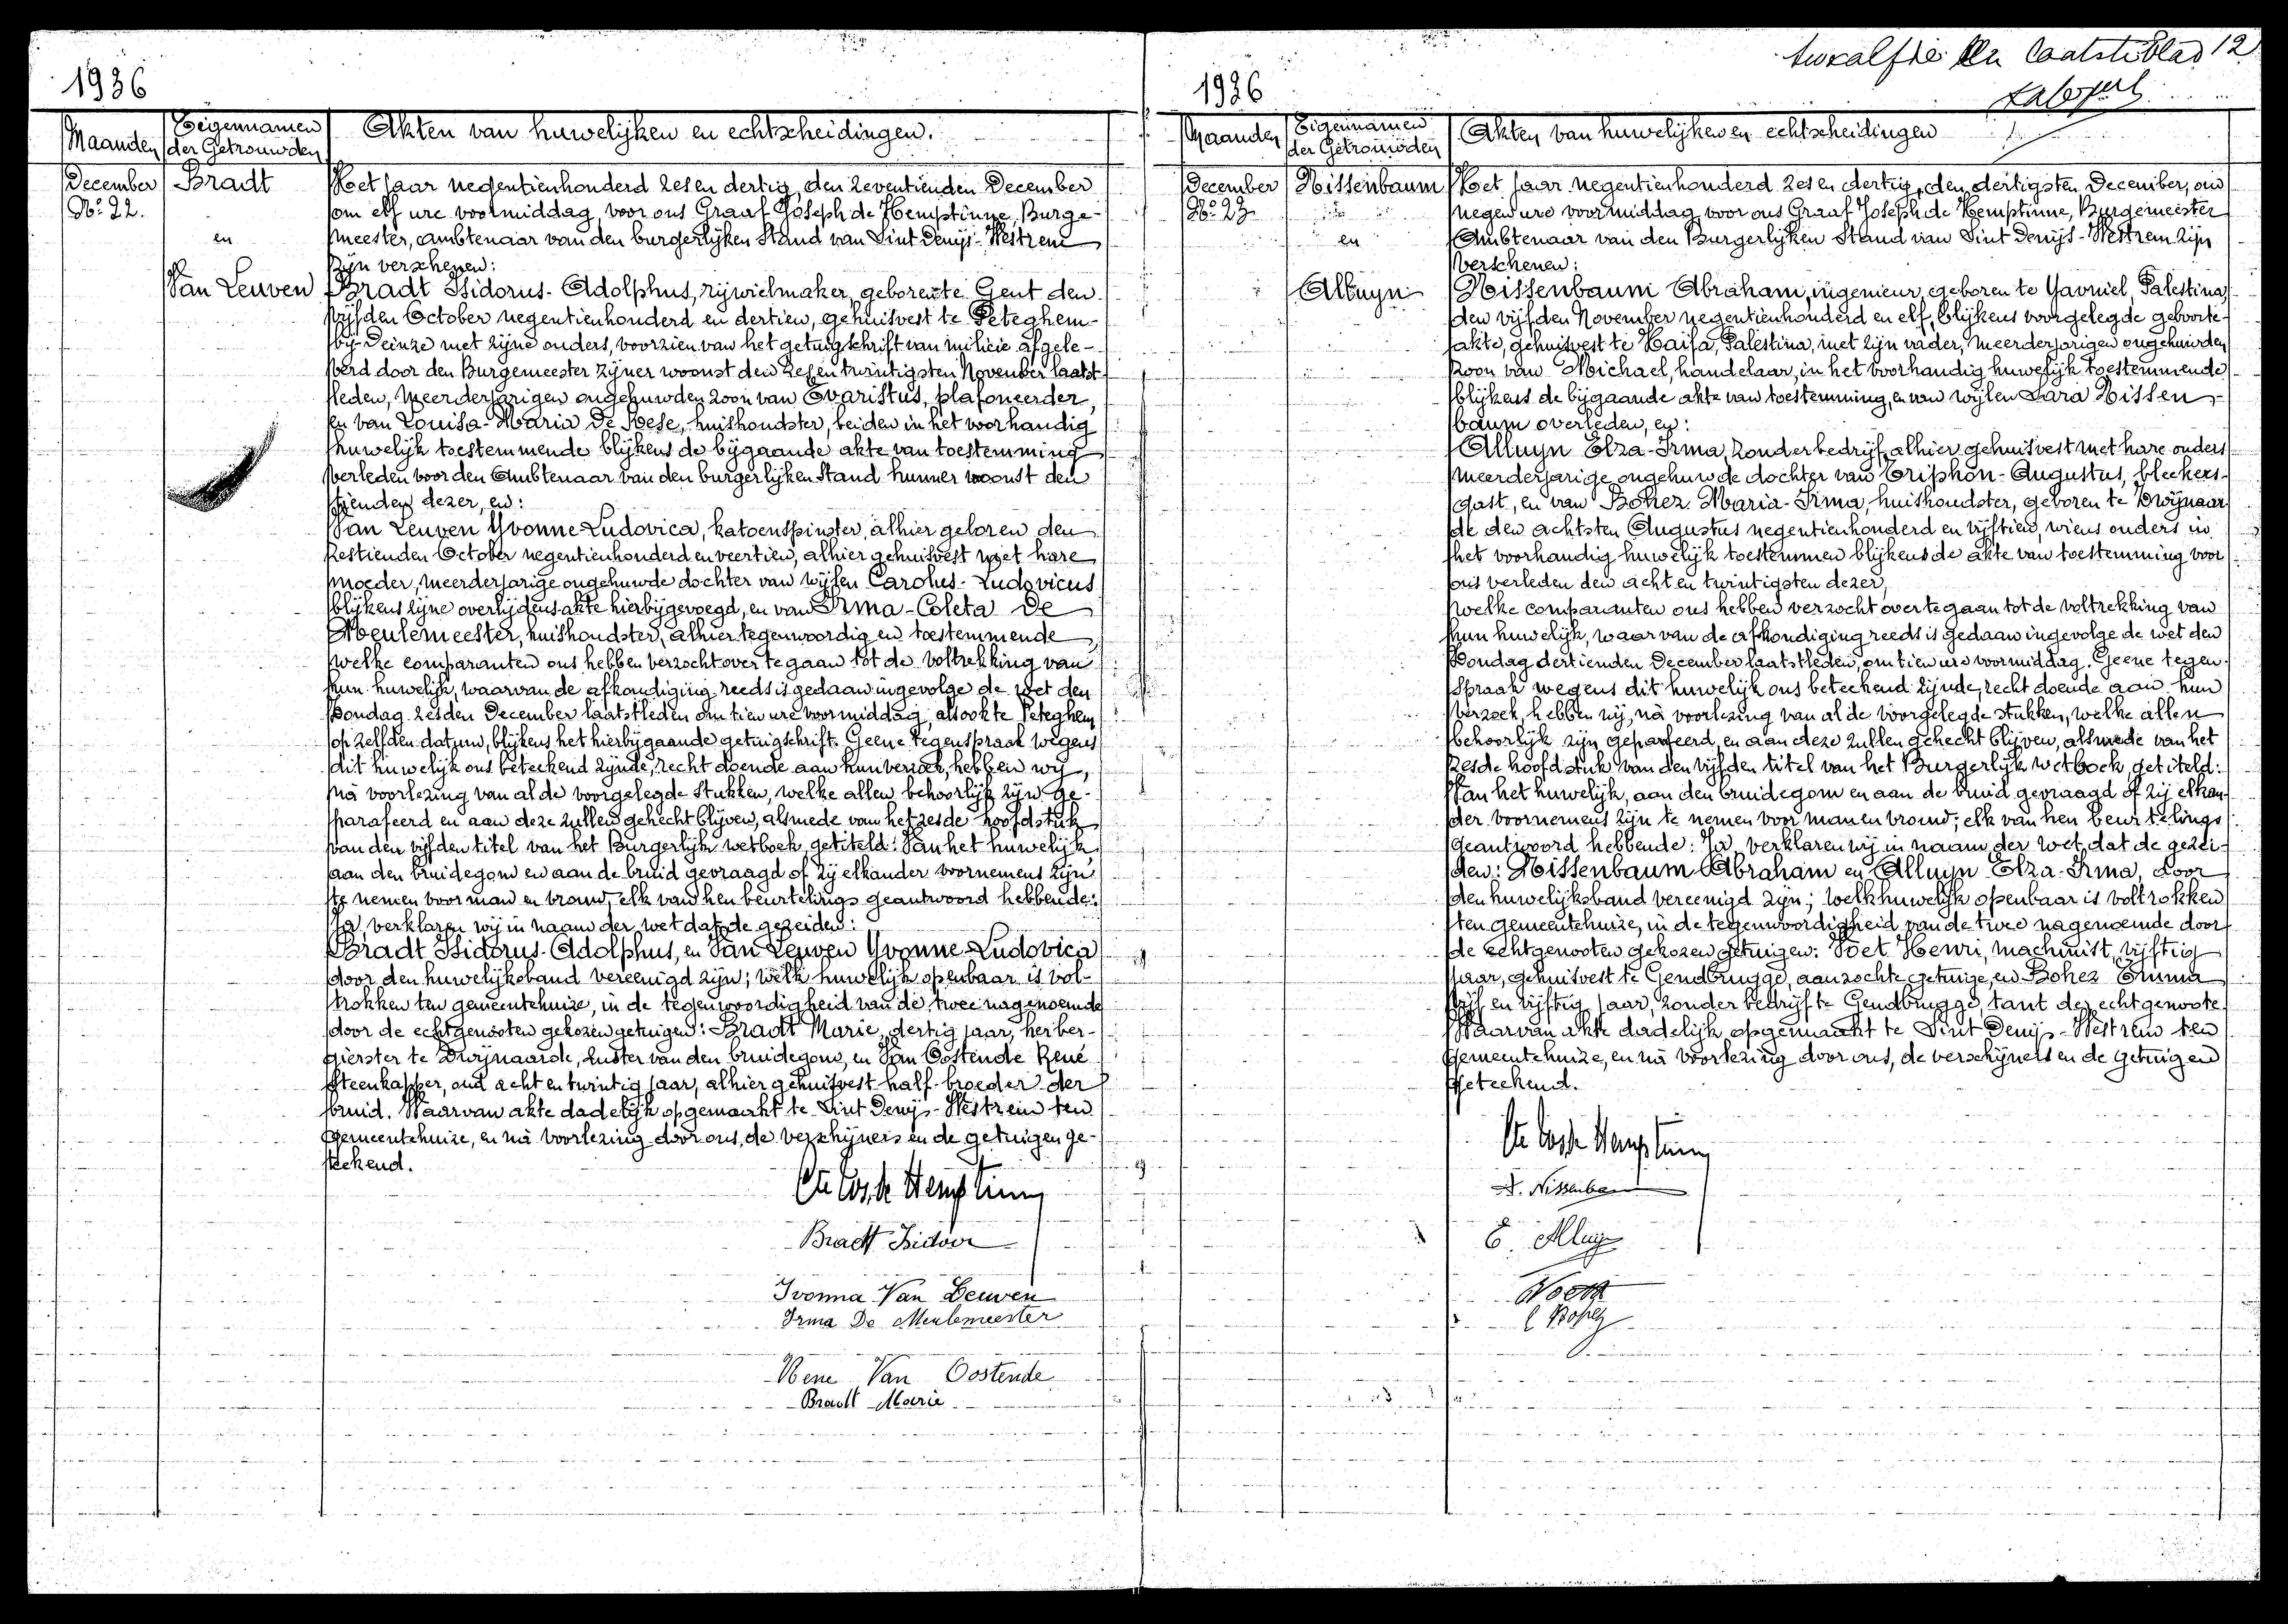 1936
Maanden
Eigennamen
der Getrouwden
Akten van huwelijken en echtscheidingen.
December
No. 22.
Bradt
en
Van Leuven
Het jaar negentienhonderd zes en dertig, den zeventienden December
om elf ure voormiddag, voor ons Graaf Joseph de Hemptinne, Burge-
meester, ambtenaar van den burgerlijken Stand van Sint Denijs-Westrem
zijn verschenen:
Bradt Isidorus-Adolphus, rijwielmaker, geboren te Gent den
vijfden October negentienhonderd en dertien, gehuisvest te Peteghem-
bij-Deinze met zijne ouders, voorzien van het getuigschrift van milicie afgele-
verd door den Burgemeester zijner woonst den zes en twintigsten November laatst-
leden, meerderjarigen ongehuwden zoon van Evaristus, plafoneerder,
en van Louisa-Maria De Roese, huishoudster, beiden in het voorhandig
huwelijk toestemmende blijkens de bijgaande akte van toestemming
verleden voor den Ambtenaar van den burgerlijken Stand hunner woonst den
tienden dezer, en:
Van Leuven Yvonne-Ludovica, katoenspinster, alhier geboren den
zestienden October negentienhonderd en veertien, alhier gehuisvest met hare
moeder, meerderjarige ongehuwde dochter van wijlen Carolus-Ludovicus
blijkens zijne overlijdensakte hierbijgevoegd, en van Irma-Coleta De
Meulemeester, huishoudster, alhier tegenwoordig en toestemmende,
welke comparanten ons hebben verzocht over te gaan tot de voltrekking van
hun huwelijk, waarvan de afkondiging reeds is gedaan ingevolge de wet den
Zondag zesden December laatstleden om tien ure voormiddag, alsook te Peteghem
op zelfden datum, blijkens het hierbijgaande getuigschrift. Geene tegenspraak wegens
dit huwelijk ons beteekend zijnde, recht doende aan hun verzoek, hebben wij,
na voorlezing van al de voorgelegde stukken, welke allen behoorlijk zijn ge-
parafeerd en aan deze zullen gehecht blijven, alsmede van het zesde hoofdstuk
van den vijfden titel van het Burgerlijk wetboek, getiteld: Van het huwelijk,
aan den bruidegom en aan de bruid gevraagd of zij elkander voornemens zijn
te nemen voor man en vrouw, elk van hen beurtelings geantwoord hebbende:
Ja verklaren wij in naam der wet dat de gezeiden:
Bradt Isidorus-Adolphus, en Van Leuven Yvonne-Ludovica
door den huwelijksband vereenigd zijn; welk huwelijk openbaar is vol-
trokken ten gemeentehuize, in de tegenwoordigheid van de twee nagenoemde
door de echtgenooten gekozen getuigen: Bradt Marie, dertig jaar, herber-
gierster te Zwijnaarde, zuster van den bruidegom, en Van Oostende René
Steenkapper, oud acht en twintig jaar, alhier gehuisvest half-broeder der
bruid. Waarvan akte dadelijk opgemaakt te Sint Denijs-Westrem ten
gemeentehuize, en na voorlezing door ons, de verschijners en de getuigen ge-
teekend.
Bradt Isidoor
Ivonna Van Leuven
Irma De Meulemeester
Rene Van Oostende
Bradt Marie
twaalfde en laatste blad 12
1936
Maanden
Eigennamen
der Getrouwden
Akten van huwelijken en echtscheidingen
December
No. 23
Nissenbaum
en
Alluyn
Het jaar negentienhonderd zes en dertig, den dertigsten December, om
negen ure voormiddag voor ons Graaf Joseph de Hemptinne, Burgemeester
Ambtenaar van den Burgerlijken Stand van Sint Denijs-Westrem zijn
verschenen:
Nissenbaum Abraham, ingenieur, geboren te Yavniel, Palestina,
den vijfden November negentienhonderd en elf, blijkens voorgelegde geboorte-
akte, gehuisvest te Haifa, Palestina, met zijn vader, meerderjarigen ongehuwden
zoon van Michael, handelaar, in het voorhandig huwelijk toestemmende
blijkens de bijgaande akte van toestemming, en van wijlen Sara Nissen-
baum overleden, en:
Alluyn Elza-Irma, zonder bedrijf, alhier gehuisvest met hare ouders
meerderjarige ongehuwde dochter van Triphon-Augustus, bleekers-
gast, en van Bohez Maria-Irma, huishoudster, geboren te Zwijnaar-
de den achtsten Augustus negentienhonderd en vijftien, wiens ouders in
het voorhandig huwelijk toestemmen blijkens de akte van toestemming voor
ons verleden den acht en twintigsten dezer,
welke comparanten ons hebben verzocht over te gaan tot de voltrekking van
hun huwelijk, waarvan de afkondiging reeds is gedaan ingevolge de wet den
Zondag dertienden December laatstleden, om tien ure voormiddag. Geene tegen-
spraak wegens dit huwelijk ons beteekend zijnde, recht doende aan hun
verzoek, hebben wij, na voorlezing van al de voorgelegde stukken, welke allen
behoorlijk zijn geparafeerd, en aan deze zullen gehecht blijven, alsmede van het
zesde hoofdstuk van den vijfden titel van het Burgerlijk wetboek, getiteld:
Van het huwelijk, aan den bruidegom en aan de bruid gevraagd of zij elkan-
der voornemens zijn te nemen voor man en vrouw; elk van hen beurtelings
geantwoord hebbende: Ja, verklaren wij in naam der wet, dat de gezei-
den: Nissenbaum Abraham en Alluyn Elza-Irma, door
den huwelijksband vereenigd zijn; welk huwelijk openbaar is voltrokken
ten gemeentehuize, in de tegenwoordigheid van de twee nagenoemde door
de echtgenooten gekozen getuigen: Voet Henri, machinist, vijftig
jaar, gehuisvest te Gendbrugge, aanzochte getuige, en Bohez Emma
vijf en vijftig jaar, zonder bedrijf te Gendbrugge, tant der echtgenoote.
Waarvan akte dadelijk opgemaakt te Sint Denijs-Westrem ten
gemeentehuize, en na voorlezing door ons, de verschijners en de getuigen
geteekend.
A. Nissenbaum
E. Alluyn
E Bohez